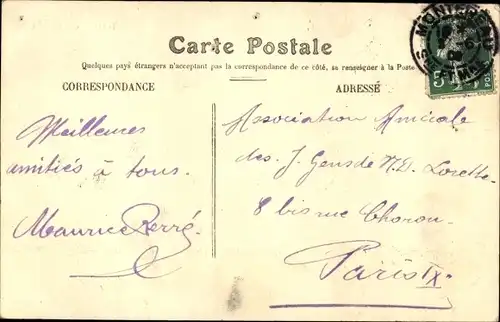 Carte Postale
Quelques pays étrangers n'acceptant pas la correspondance de ce côté, se renseigner à la Poste
CORRESPONDANCE
ADRESSÉ
MONTEREAU
5
POSTES
Meilleures
amitiés à tous.
Maurice Perré.
Association Amicale
des J. Gens de N.D. Lorette
8 bis rue Choron
Paris IX e